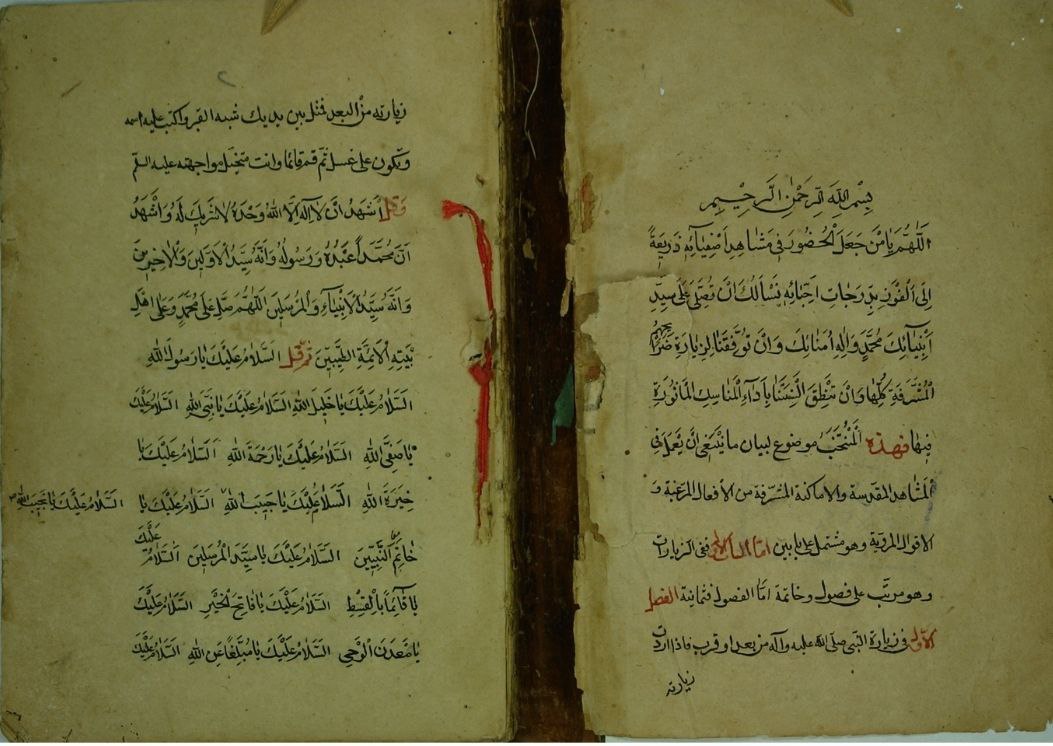 بِسْمِ اللهِ الرَّحْمٰنِ الرَّحِيْمِ
اَللّٰهُمَّ يَا مَنْ جَعَلَ الْحُضُورَ فِي مَشَاهِدِ اَصْفِيَائِهِ ذَرِيعَةً
اِلَى الْفَوْزِ بِدَرَجَاتِ اَحِبَّائِهِ نَسْأَلُكَ اَنْ تُصَلِّيَ عَلَى سَيِّدِ
اَنْبِيَآئِكَ مُحَمَّدٍ وَآلِهِ اُمَنَائِكَ وَاَنْ تُوَفِّقَنَا لِزِيَارَةِ ضَرَائِحِهِمُ
الْمُشَرَّفَةِ كُلِّهَا وَاَنْ تُنْطِقَ اَلْسِنَتَنَا بِاَدَآءِ الْمَنَاسِكِ الْمَأْثُورَةِ
فِيهَا فهذه اَلْمُنْتَخَبُ موضوع لبيان ما يَنْبَغِي اَنْ يُعْمَلَ فِي
الْمَشاهد المقدسة والاماكنة المُشَرّفة من الأفعال المرغبة و
الاقوال المروية وهو مشتمل على بابين امّا الباب الاول ففى الزيارات
وهو مرتّب على فصول وخاتمة امّا الفصول فثمانية الفصل
الاوّل فى زيارة النبى صلى الله عليه وآله من بعد او قرب فاذا اردت
زيارته
٢
زيارته مِنْ البعد فمثل بين يديك شبه القبر واكتب عليه اسمه
وتكون على غسل ثم قم قائما وانت متخيل مواجهته عليه السلم
وَقُل أَشهَدُ اَنْ لا اِلٰهَ اِلَّا اللهُ وَحْدَهُ لا شَرِيكَ لَهُ وَاَشْهَدُ
اَنَّ مُحَمَّداً عَبْدُهُ وَرَسُولُهُ وَاَنَّهُ سَيِّدُ الْاَوَّلِينَ وَالْاٰخِرِينَ
وَاَنَّهُ سَيِّدُ الْاَنْبِيَاءِ وَالْمُرْسَلِينَ اَللّٰهُمَّ صَلِّ عَلَى مُحَمَّدٍ وَعَلَى اَهْلِ
بَيْتِهِ الْاَئِمَّةِ الطَّيِّبِينَ ثم قل اَلسَّلَامُ عَلَيْكَ يَا رَسُولَ اللهِ
اَلسَّلَامُ عَلَيْكَ يَا خَلِيلَ اللهِ السَّلَامُ عَلَيْكَ يَا نَبِيَّ اللهِ السَّلَامُ عَلَيْكَ
يَا صَفِيَّ اللهِ السَّلَامُ عَلَيْكَ يَا رَحْمَةَ اللهِ اَلسَّلَامُ عَلَيْكَ يَا
خِيَرَةَ اللهِ اَلسَّلَامُ عَلَيْكَ يَا حَبِيبَ اللهِ السَّلَامُ عَلَيْكَ يَا السَّلَامُ عَلَيْكَ يَا نَجِيبَ اللهِ
خَاتِمَ النَّبِيّينَ السَّلَامُ عَلَيْكَ يَا سَيِّدَ الْمُرْسَلِينَ اَلسَّلَامُ عَلَيْكَ
يَا قَائِماً بِالْقِسْطِ السَّلَامُ عَلَيْكَ يَا فَاتِحَ الْخَيْرِ السَّلَامُ عَلَيْكَ
يَا مَعْدِنَ الْوَحْيِ السَّلَامُ عَلَيْكَ يَا مُبَلِّغاً عَنِ اللهِ السَّلَامُ عَلَيْكَ